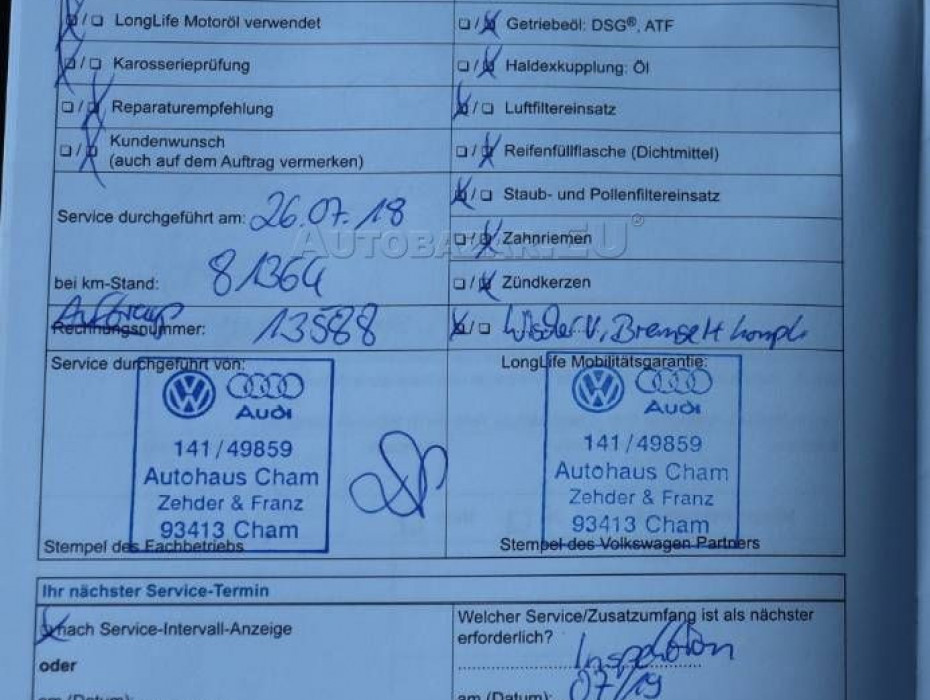 LongLife Motoröl verwendet
Getriebeöl: DSG®, ATF
Karosserieprüfung
Haldexkupplung: Öl
Reparaturempfehlung
Luftfiltereinsatz
Kundenwunsch
(auch auf dem Auftrag vermerken)
Reifenfüllflasche (Dichtmittel)
Staub- und Pollenfiltereinsatz
Service durchgeführt am: 26.07.18
AUTOBAZAR.EU®
Zahnriemen
bei km-Stand: 81364
Zündkerzen
Auftrags
Rechnungsnummer: 13588
Bremse H
Service durchgeführt von:
LongLife Mobilitätsgarantie:
Audi
141/49859
Autohaus Cham
Zehder & Franz
93413 Cham
Stempel des Fachbetriebs
Audi
141/49859
Autohaus Cham
Zehder & Franz
93413 Cham
Stempel des Volkswagen Partners
Ihr nächster Service-Termin
nach Service-Intervall-Anzeige
Welcher Service/Zusatzumfang ist als nächster
erforderlich?
Inspektion
oder
am (Datum):
am (Datum): 07/19